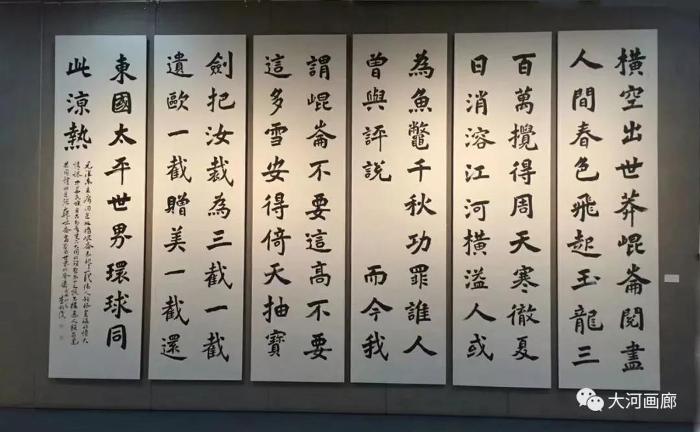 橫空出世莽崐崙閱盡
人間春色飛起玉龍三
百萬攪得周天寒徹夏
日消溶江河橫溢人或
為魚鼈千秋功罪誰人
曾與評說 而今我
謂崐崙不要這高不要
這多雪安得倚天抽寶
劍把汝裁為三截一截
遺歐一截贈美一截還
東國太平世界環球同
此涼熱
大河画廊